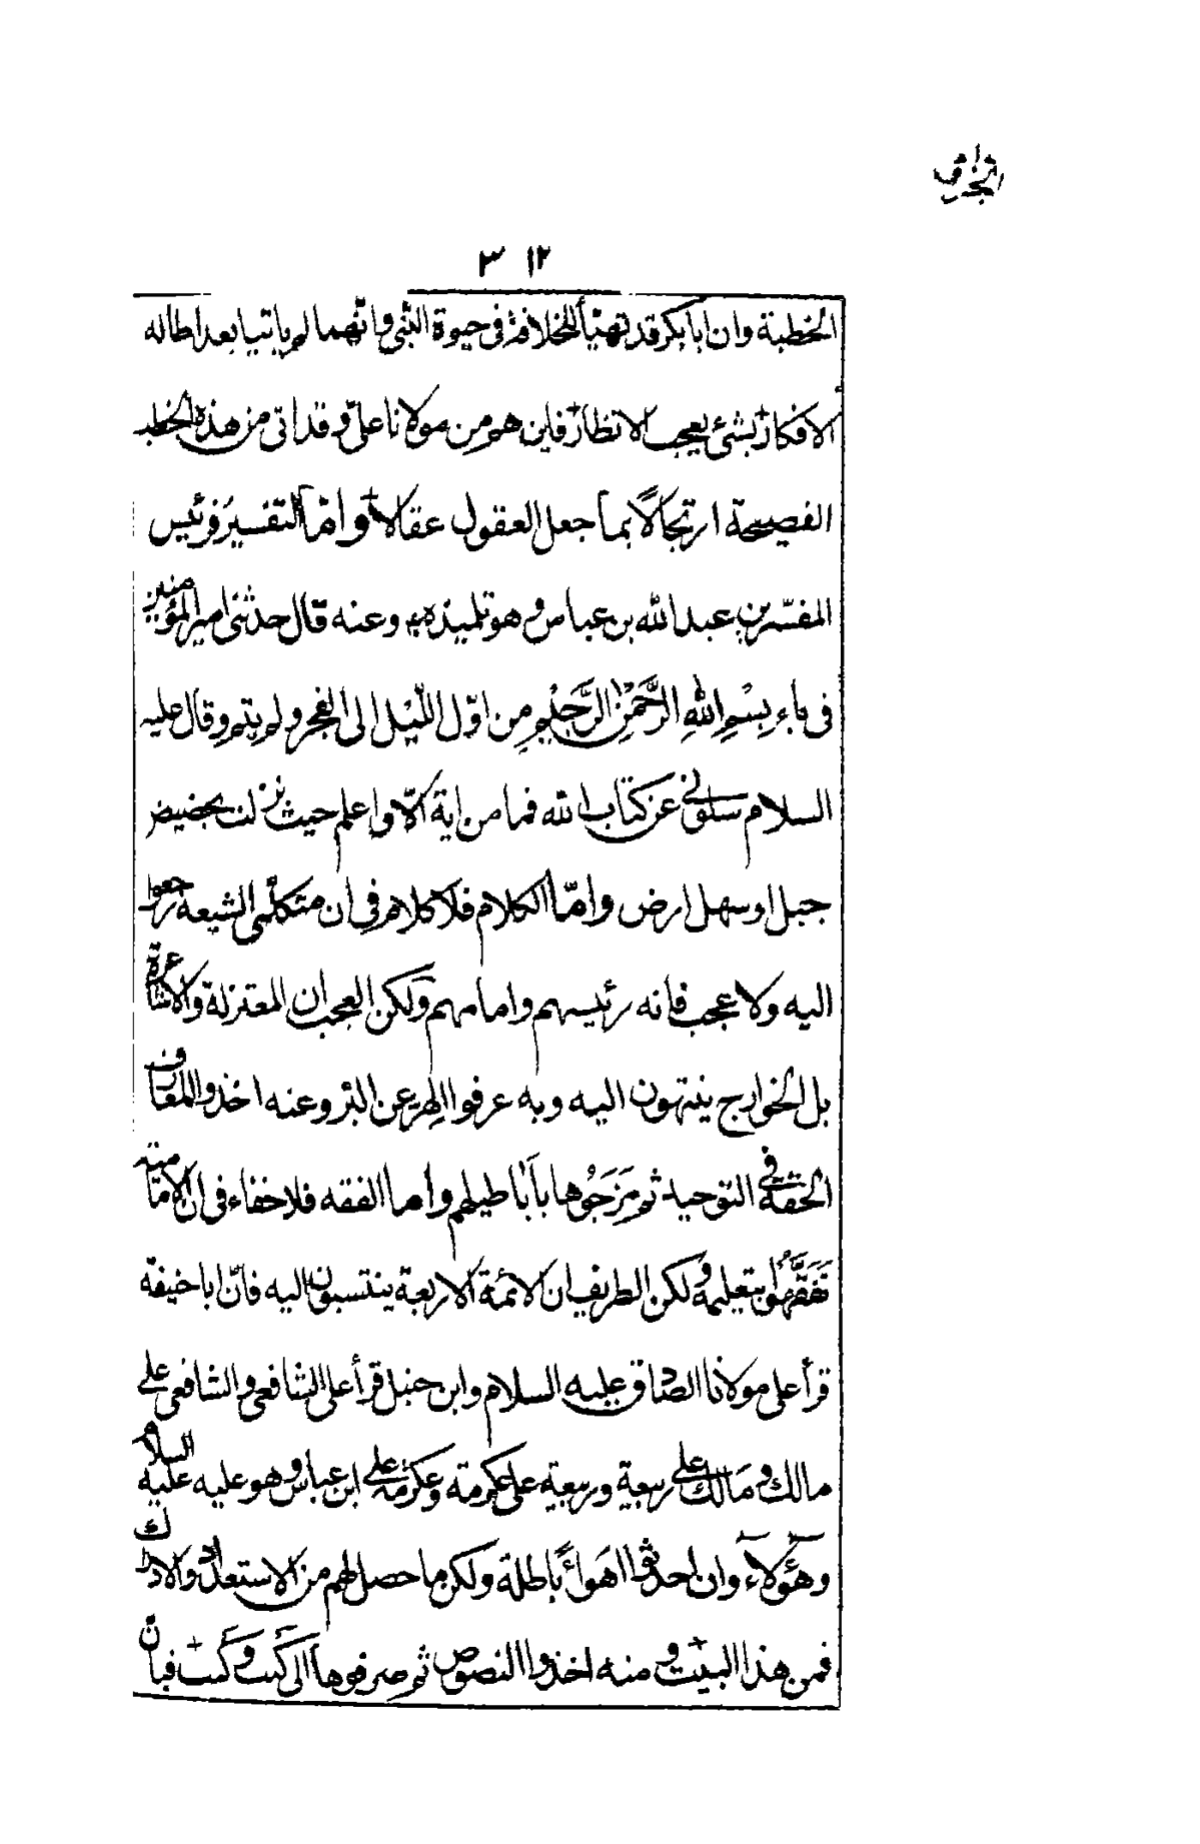 ٣١٢
الخطبة وان ابابكر قد تهيّأ للخلافة فى حيوة النّبى وانّهما لم يأتيا بعد اطاله
الافكار بشئ يعجب الانظار فاين هو من مولانا علىّ وقد اتى من هذه الخطب
الفصيحة ارتجالًا بما جعل العقول عقالا وامّا التفسير فرئيس
المفسّرين عبد الله بن عباس وهو تلميذه وعنه قال حدثنى امير المؤمنين
فى باء بِسْمِ اللهِ الرَّحْمٰنِ الرَّحِيْمِ من اوّل اللّيل الى الفجر ولم يتم وقال عليه
السلام سلونى عن كتاب الله فما من اية الّا واعلم حيث نزلت بحضيض
جبل او سهل ارض وامّا الكلام فلا كلام فى ان متكلّمى الشيعة رجعوا
اليه ولا عجب فانه رئيسهم وامامهم ولكن العجب ان المعتزلة والاشاعرة
بل الخوارج ينتهون اليه وبه عرفوا الهر عن البر وعنه اخذوا المعارف
الحقة فى التوحيد ثم مَزَجُوها بأباطيلهم وأما الفقه فلا خفاء فى ان الامامية
تَفَقَّهُوا بتعليمه ولكن الطريف ان الائمة الاربعة ينتسبون اليه فانّ اباحنيفة
قرأ على مولانا الصادق عليه السلام وابن حنبل قرأ على الشافعى والشافعى على
مالك ومَالك على ربيعة وربيعة على عكرمة وعكرمة على ابن عباس وهو عليه عليه السلام
وهؤلاء وان احدثوا اهَواءً باطلة ولكن ما حصل لهم من الاستعداد والادراك
فمن هذا البيت ومنه اخذوا النصوص ثم صرفوها الى كَيت وكَيت فبان